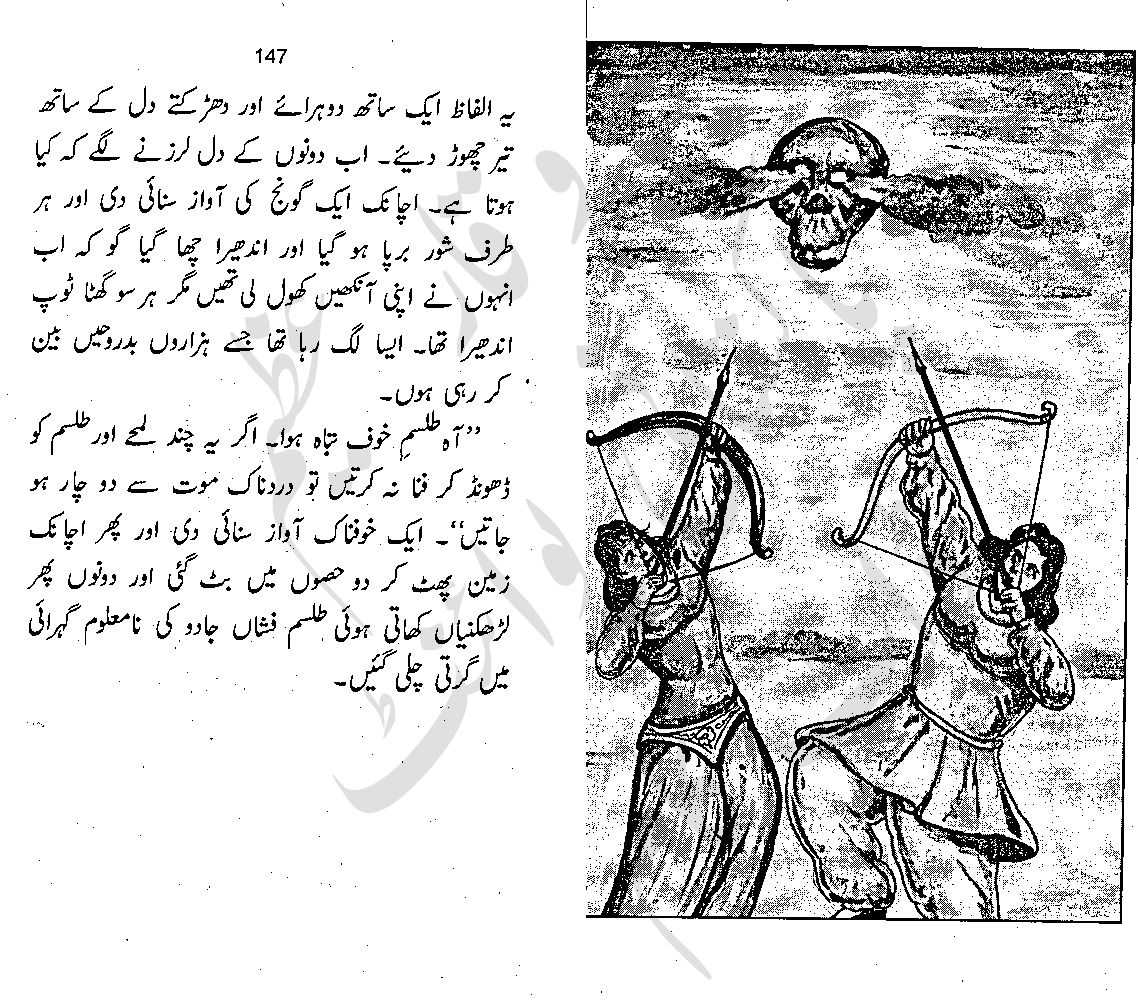 147
یہ الفاظ ایک ساتھ دوہرائے اور دھڑکتے دل کے ساتھ
تیر چھوڑ دیئے۔ اب دونوں کے دل لرزنے لگے کہ کیا
ہوتا ہے۔ اچانک ایک گونج کی آواز سنائی دی اور ہر
طرف شور برپا ہو گیا اور اندھیرا چھا گیا گو کہ اب
انہوں نے اپنی آنکھیں کھول لی تھیں مگر ہر سو گھٹا ٹوپ
اندھیرا تھا۔ ایسا لگ رہا تھا جسے ہزاروں بدروحیں بین
کر رہی ہوں۔
”آہ طلسمِ خوف تباہ ہوا۔ اگر یہ چند لمحے اور طلسم کو
ڈھونڈ کر فنا نہ کرتیں تو دردناک موت سے دو چار ہو
جاتیں“۔ ایک خوفناک آواز سنائی دی اور پھر اچانک
زمین پھٹ کر دو حصوں میں بٹ گئی اور دونوں پھر
لڑھکنیاں کھاتی ہوئی طلسم فشاں جادو کی نامعلوم گہرائی
میں گرتی چلی گئیں۔